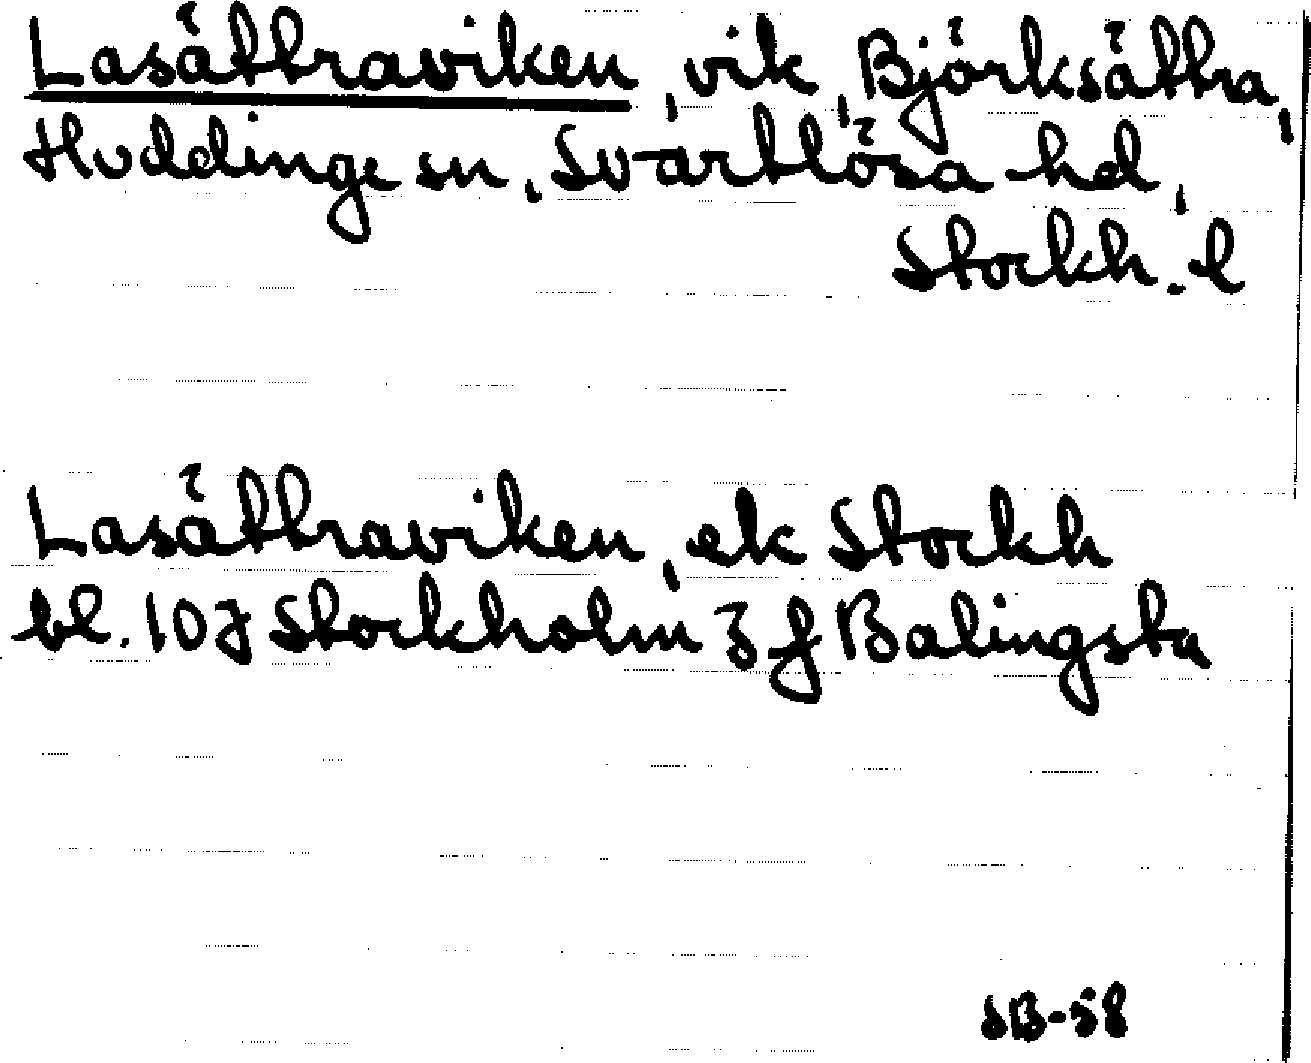 Lasättraviken, vik, Björksättra,
Huddinge sn, Svartlösa hd,
Stockh. l
Lasättraviken, ek Stockh
bl. 107 Stockholm 3 f Balingsta
SB-58